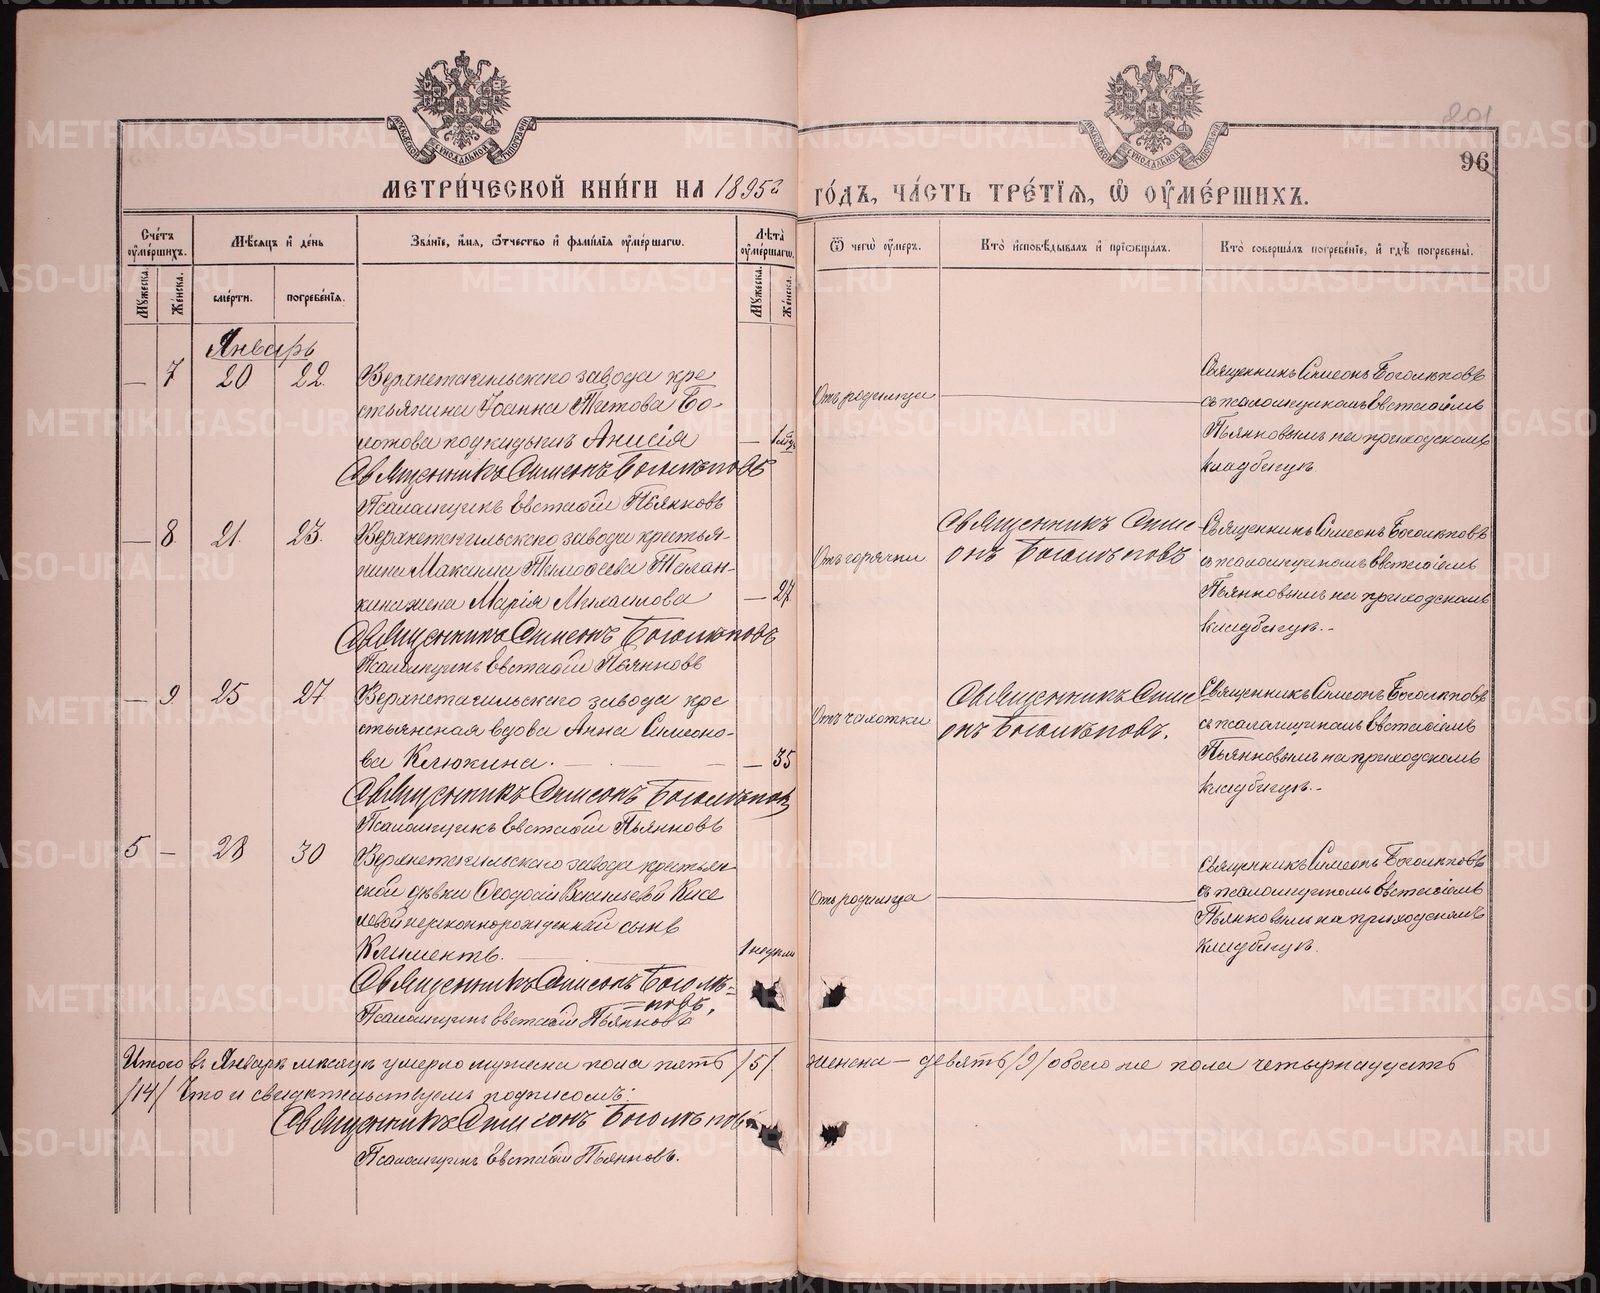 МЕТРИ́ЧЕСКОЙ КНИ́ГИ НА 1895й ГО́ДЪ, ЧА́СТЬ ТРЕ́ТІѦ, Ѽ ОУ҆МЕ́РШИХЪ.
96
Сче́тъ оу҆ме́ршихъ.
Мѣ́сяцъ и҆ де́нь
Зва́нїе, и҆́мѧ, ѻ҆́тчество и҆ фами́лїѧ оу҆ме́ршагѡ.
Лѣ́та оу҆ме́ршагѡ.
Ѿ чегѡ̀ оу҆́меръ.
Кто̀ и҆сповѣ́дывалъ и҆ прїѡбща́лъ.
Кто̀ соверша́лъ погребе́нїе, и҆ гдѣ̀ погребены̀.
Мꙋ́жеска.
Же́нска.
сме́рти.
погребе́нїѧ.
Мꙋ́жеска.
Же́нска.
Январь
— 7 20 22.
Верхнетагильскаго завода кре
стьянина Іоанна Титова Бо-
лотова подкидышъ Анисія —
Священникъ Симеонъ Боголѣповъ
Псаломщикъ Евстафій Пьянковъ
Отъ родимца
Священникъ Симеонъ Боголѣповъ
съ псаломщикомъ Евстафіемъ
Пьянковымъ на приходскомъ
кладбищѣ.
— 8 21. 23.
Верхнетагильскаго завода крестья-
нина Максима Тимофеева Талан-
кина жена Марія Михаилова — 27.
Священникъ Симеонъ Боголѣповъ
Псаломщикъ Евстафій Пьянковъ
Отъ горячки
Священникъ Симе
онъ Боголѣповъ
Священникъ Симеонъ Боголѣповъ
съ псаломщикомъ Евстафіемъ
Пьянковымъ на приходскомъ
кладбищѣ.-
— 9 25 27
Верхнетагильскаго завода кре
стьянская вдова Анна Симеоно-
ва Клюкина. — 35
Священникъ Симеонъ Боголѣповъ
Псаломщикъ Евстафій Пьянковъ
Отъ чахотки
Священникъ Симе
онъ Боголѣповъ.
Священникъ Симеонъ Боголѣповъ
съ псаломщикомъ Евстафіемъ
Пьянковымъ на приходскомъ
кладбищѣ.-
5 — 28 30
Верхнетагильскаго завода крестьян
ской дѣвки Феодосіи Васильевой Кисе
левой незаконнорожденный сынъ
Климентъ. 1 недѣли
Священникъ Симеонъ Боголѣ=
повъ,
Псаломщикъ Евстафій Пьянковъ
Отъ родимца
Священникъ Симеонъ Боголѣповъ
съ псаломщикомъ Евстафіемъ
Пьянковымъ на приходскомъ
кладбищѣ.
Итого въ Январѣ мѣсяцѣ умерло мужска пола пять /5/ женска — девять /9/ обоего же пола четырнадцать
/14/ Что и свидѣтельствуемъ подписомъ:
Священникъ Симеонъ Боголѣповъ
Псаломщикъ Евстафій Пьянковъ.
METRIKI.GASO-URAL.RU